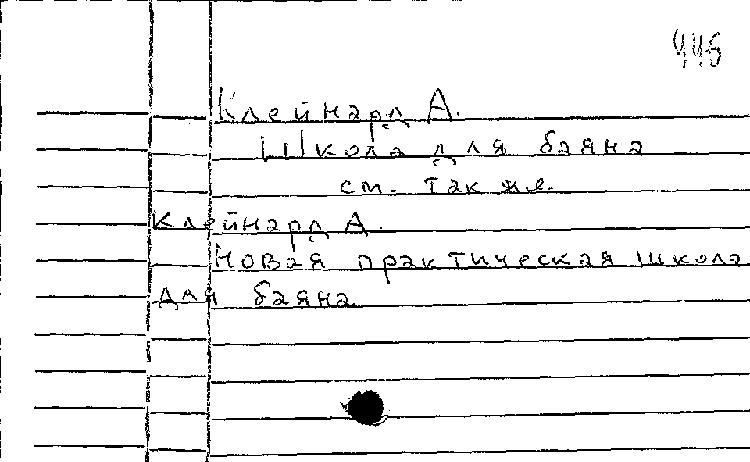 445
Клейнард А.
Школа для баяна
см. также.
Клейнард А.
Новая практическая школа
для баяна